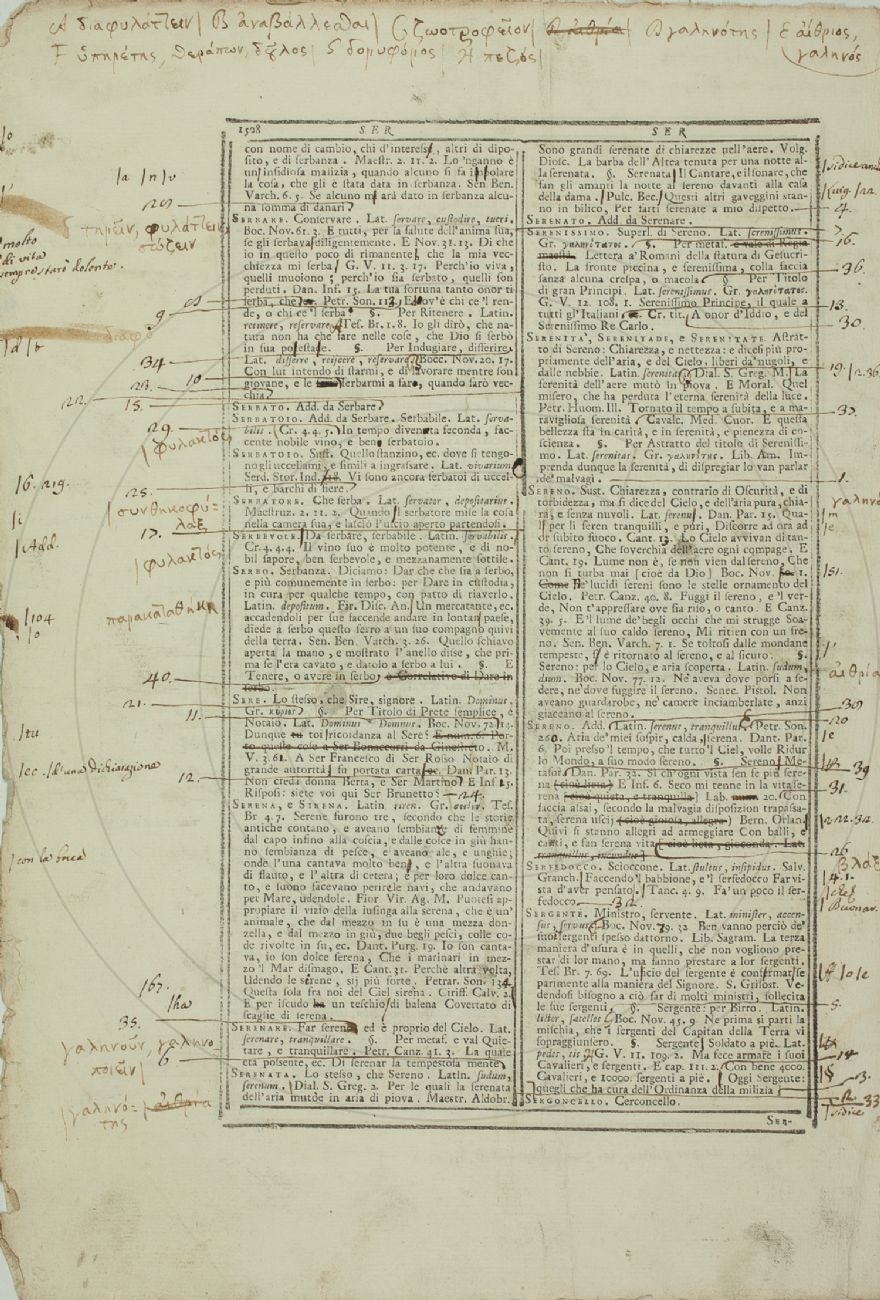 A διαφυλάττειν | B ἀναβάλλεσθαι | C ζωοτροφεῖον | D γαληνότης | E αἴθριος,
F ὑπηρέτης, θεράπων, δοῦλος | G δορυφόρος | H πεζός | γαληνός
1508 SER SER
con nome di cambio, chi d'interessi, altri di dipo-
sito, e di serbanza. Maestr. 2. 11. 2. Lo 'nganno è
un' insidiosa malizia, quando alcuno si fa
la cosa, che gli è stata data in serbanza. Sen. Ben.
Varch. 6. 5. Se alcuno m' arà dato in serbanza alcu-
na somma di danari
SERBARE. Conservare. Lat. servare, custodire, tueri.
Boc. Nov. 61. 3. E tutti, per la salute dell'anima sua,
se gli serbava diligentemente. E Nov. 31. 13. Di che
io in questo poco di rimanente, che la mia vec-
chiezza mi serba G. V. 11. 3. 17. Perch'io viva,
quelli muoiono; perch'io sia serbato, quelli son
perduti. Dan. Inf. 15. La tua fortuna tanto onor ti
serba, che Petr. Son. ov'è chi ce 'l ren-
de, o chi ce 'l serba §. Per Ritenere. Latin.
retinere, reservare Tes. Br. 1. 8. Io gli dirò, che na-
tura non ha che fare nelle cose, che Dio si serbò
in sua possessa. §. Per Indugiare, differire,
Lat. differre, reijcere, reservare Bocc. Nov. 20. 17.
Con lui intendo di starmi, e di lavorare mentre son
giovane, e le serbarmi a fare, quando sarò vec-
chia
SERBATO. Add. da Serbare
SERBATOIO. Add. da Serbare. Serbabile. Lat. serva-
bilis. Cr. 4. 4. In tempo divenuta seconda, fac-
cente nobile vino, e bene serbatoio.
SERBATOIO. Sust. Quello stanzino, ec. dove si tengo-
no gli uccellami, e simili a ingrassare. Lat. vivarium
Serd. Stor. Ind. Vi sono ancora serbatoi di uccel-
li, e barchi di fiere.
SERBATORE. Che serba. Lat. servator, depositarius.
Maestruz. 2. 11. 2. Quando 'l serbatore mise la cosa
nella camera sua, e lasciò l'uscio aperto partendosi.
SERBEVOLE. Da serbare, serbabile. Latin. servabilis.
Cr. 4. 4. 4. Il vino suo è molto potente, e di no-
bil sapore, ben serbevole, e mezzanamente sottile.
SERBO. Serbanza. Diciamo: Dar che che sia a serbo,
e più comunemente in serbo: per Dare in custodia,
in cura per qualche tempo, con patto di riaverlo.
Latin. depositum. Fir. Disc. An. Un mercatante, ec.
accadendoli per sue faccende andare in lontan paese,
diede a serbo questo ferro a un suo compagno quivi
della terra. Sen. Ben. Varch. 3. 26. Quello schiavo
aperta la mano, e mostrato l'anello disse, che pri-
ma se l'era cavato, e datolo a serbo a lui. §. E
Tenere, o avere in serbo, è Correlativo di Dare in
serbo.
SERE. Lo stesso, che Sire, signore. Latin. Dominus.
Gr. κύριος §. Per Titolo di Prete semplice, e
Notaio. Lat. Dominus Domnus. Boc. Nov. 72. 13.
Dunque toi ricordanza al Sere E num. 6. Por-
to queste cose a Ser Bonaccorri da Ginestreto. M.
V. 3. 61. A Ser Francesco di Ser Rosso Notaio di
grande autorità fu portata carta, ec. Dan. Par. 13.
Non creda donna Berta, e Ser Martino E Inf. 15.
Risposi: siete voi qui Ser Brunetto
SERENA, e SIRENA. Latin. siren. Gr. σειρήν. Tes.
Br. 4. 7. Serene furono tre, secondo che le storie
antiche contano, e aveano sembianze di femmine
dal capo infino alla coscia, e dalle cosce in giù han-
no sembianza di pesce, e aveano ale, e unghie;
onde l'una cantava molto bene, e l'altra suonava
di flauto, e l'altra di cetera; e per loro dolce can-
to, e suono facevano perire le navi, che andavano
per Mare, udendole. Fior. Vir. Ag. M. Puotesi ap-
propiare il vizio della lusinga alla serena, che è un'
animale, che dal mezzo in su è una mezza don-
zella, e dal mezzo in giù, due begli pesci, colle co-
de rivolte in su, ec. Dant. Purg. 19. Io son canta-
va, io son dolce serena, Che i marinari in mez-
zo 'l Mar dismago. E Cant. 31. Perchè altra volta,
Udendo le serene, sij più forte. Petrar. Son. 134.
Questa sola fra noi del Ciel sirena. Ciriff. Calv. 2.
E per iscudo un teschio di balena Covertato di
scaglie di serena.
SERENARE. Far sereno, ed è proprio del Cielo. Lat.
serenare, tranquillare. §. Per metaf. e val Quie-
tare, e tranquillare. Petr. Canz. 41. 3. La quale
era possente, ec. Di serenar la tempestosa mente
SERENATA. Lo stesso, che Sereno. Latin. sudum,
serenum. Dial. S. Greg. 2. Per le quali la serenata
dell'aria mutòe in aria di piova. Maestr. Aldobr.
Sono grandi serenate di chiarezze nell'aere. Volg.
Diosc. La barba dell'Altea tenuta per una notte al-
la serenata. §. Serenata Il Cantare, e il sonare, che
fan gli amanti la notte al sereno davanti alla casa
della dama. Pulc. Bec. Questi altri gaveggini stan-
no in bilico, Per farti serenate a mio dispetto.
SERENATO. Add. da Serenare.
SERENISSIMO. Superl. di Sereno. Lat. serenissimus.
Gr. γαληνότατος. §. Per metaf. e vale di Regia
maestà. Lettera a' Romani della statura di Gesucri-
sto. La fronte piccina, e serenissima, colla faccia
sanza alcuna crespa, o macola §. Per Titolo
di gran Principi. Lat. serenissimus. Gr. γαληνότατος.
G. V. 12. 108. 1. Serenissimo Principe, il quale a
tutti gl'Italiani Cr. tit. A onor d'Iddio, e del
Serenissimo Re Carlo.
SERENITÀ, SERENITADE, e SERENITATE. Astrat-
to di Sereno: Chiarezza, e nettezza: e dicesi più pro-
piamente dell'aria, e del Cielo, liberi da' nugoli, e
dalle nebbie. Latin. serenitas Dial. S. Greg. M. La
serenità dell'aere mutò in piova. E Moral. Quel
misero, che ha perduta l'eterna serenità della luce.
Petr. Huom. Ill. Tornato il tempo a subita, e a ma-
ravigliosa serenità Cavalc. Med. Cuor. E questa
bellezza sta in carità, e in serenità, e pienezza di co-
scienza. §. Per Astratto del titolo di Serenissi-
mo. Lat. serenitas. Gr. γαληνότης. Lib. Am. Im-
prenda dunque la serenità, di dispregiar lo van parlar
de' malvagi.
SERENO. Sust. Chiarezza, contrario di Oscurità, e di
torbidezza, ma si dice del Cielo, e dell'aria pura, chia-
ra, e senza nuvoli. Lat. serenus. Dan. Par. 15. Qua-
le per li seren tranquilli, e puri, Discorre ad ora ad
or subito fuoco. Cant. 13. Lo Cielo avvivan di tan-
to sereno, Che soverchia dell'aere ogni compage. E
Cant. 19. Lume non è, se non vien dal sereno, Che
non si turba mai [cioè da Dio] Boc. Nov. 60. 1.
Come ne' lucidi sereni sono le stelle ornamento del
Cielo. Petr. Canz. 40. 8. Fuggi il sereno, e 'l ver-
de, Non t'appressare ove sia riso, o canto. E Canz.
39. 5. E 'l lume de' begli occhi che mi strugge Soa-
vemente al suo caldo sereno, Mi ritien con un fre-
no. Sen. Ben. Varch. 7. 1. Se toltosi dalle mondane
tempeste, è ritornato al sereno, e al sicuro. §.
Sereno: per lo Cielo, e aria scoperta. Latin. sudum,
dium. Boc. Nov. 77. 12. Nè aveva dove porsi a se-
dere, nè dove fuggire il sereno. Senec. Pistol. Non
aveano guardarobe, ne' camere inciamberlate, anzi
giaceano al sereno.
SERENO. Add. Latin. serenus, tranquillus. Petr. Son.
260. Aria de' miei sospir, calda, serena. Dant. Par.
6. Poi presso 'l tempo, che tutto 'l Ciel, volle Ridur
lo Mondo, a suo modo sereno. §. Sereno Me-
tafor. Dan. Par. 32. Sì ch'ogni vista sen fe più sere-
na (cioè lieta) E Inf. 6. Seco mi tenne in la vita se-
rena (cioè quieta, e tranquilla) Lab. num. 20. Con
faccia assai, secondo la malvagia disposizion trapassa-
ta, serena uscij (cioè gioiosa, allegro) Bern. Orlan.
Quivi si stanno allegri ad armeggiare Con balli, e
canti, e fan serena vita (cioè lieta, gioconda. Lat.
tranquillus, iucundus)
SERFEDOCCO. Scioccone. Lat. stultus, insipidus. Salv.
Granch. Faccendo 'l babbione, e 'l serfedocco Far vi-
sta d'aver pensato. Tanc. 4. 9. Fa' un poco il ser-
fedocco
SERGENTE. Ministro, servente. Lat. minister, accen-
sus, servus Boc. Nov. 79. 32 Ben vanno perciò de'
suoi sergenti spesso dattorno. Lib. Sagram. La terza
maniera d'usura è in quelli, che non vogliono pre-
star di lor mano, ma fanno prestare a lor sergenti.
Tes. Br. 7. 69. L'uficio del sergente è confermarsse
parimente alla maniera del Signore. S. Grisost. Ve-
dendosi bisogno a ciò far di molti ministri, sollecita
le sue sergenti. §. Sergente: per Birro. Latin.
lictor, satelles Boc. Nov. 45. 9 Ne prima si partì la
mischia, che i sergenti del Capitan della Terra vi
sopraggiunsero. §. Sergente Soldato a piè. Lat.
pedes, itis G. V. 11. 109. 2. Ma fece armare i suoi
Cavalieri, e sergenti. E cap. 111. 2. Con bene 4000.
Cavalieri, e 10000. sergenti a piè. Oggi Sergente:
quegli che ha cura dell'Ordinanza della milizia
SERGONCELLO. Cerconcello.
Ser-
molto
di vita
sempre starò dolente.
φυλακτός
34
10
23.
22.
15.
29.
16. 219.
25.
συνθηκοφύ-
λαξ
17.
Add.
φυλακτός
104
παρακαταθήκη
40.
21.
11.
ec. d'una dichiarazione
12.
24.
con la bocca
167.
35.
γαληνοῦν, γαληνο-
ποιεῖν
6
γαληνό-
της
4.
16.
36.
13.
30.
19.
32.
1.
39
20
31.
26
βλάξ
5.
14
3.
33